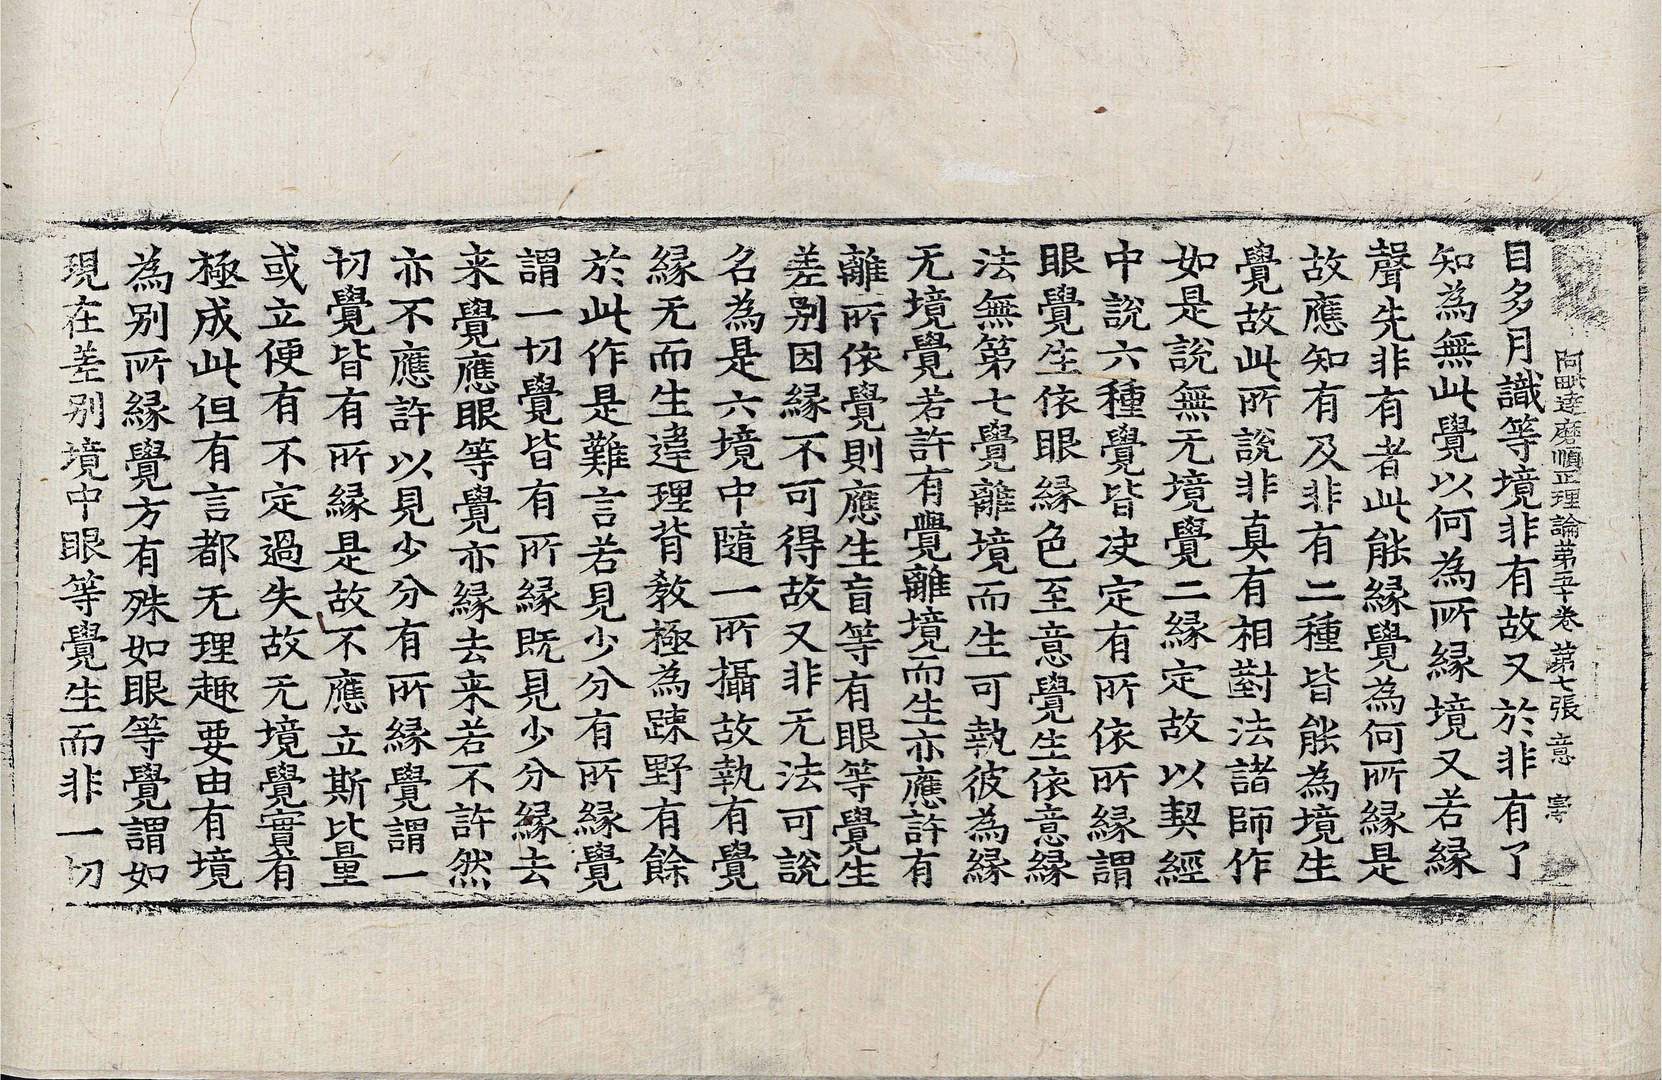 阿毗達磨順正理論第五十卷　第七張　意
目多月識等境非有故又於非有了
知為無此覺以何為所緣境又若緣
聲先非有者此能緣覺為何所緣是
故應知有及非有二種皆能為境生
覺故此所說非真有相對法諸師作
如是說無无境覺二緣定故以契經
中說六種覺皆決定有所依所緣謂
眼覺生依眼緣色至意覺生依意緣
法無第七覺離境而生可執彼為緣
无境覺若許有覺離境而生亦應許有
離所依覺則應生盲等有眼等覺生
差別因緣不可得故又非无法可說
名為是六境中隨一所攝故執有覺
緣无而生違理背教極為踈野有餘
於此作是難言若見少分有所緣覺
謂一切覺皆有所緣既見少分緣去
来覺應眼等覺亦緣去来若不許然
亦不應許以見少分有所緣覺謂一
切覺皆有所緣是故不應立斯比量
或立便有不定過失故无境覺實有
極成此但有言都无理趣要由有境
為別所緣覺方有殊如眼等覺謂如
現在差別境中眼等覺生而非一切